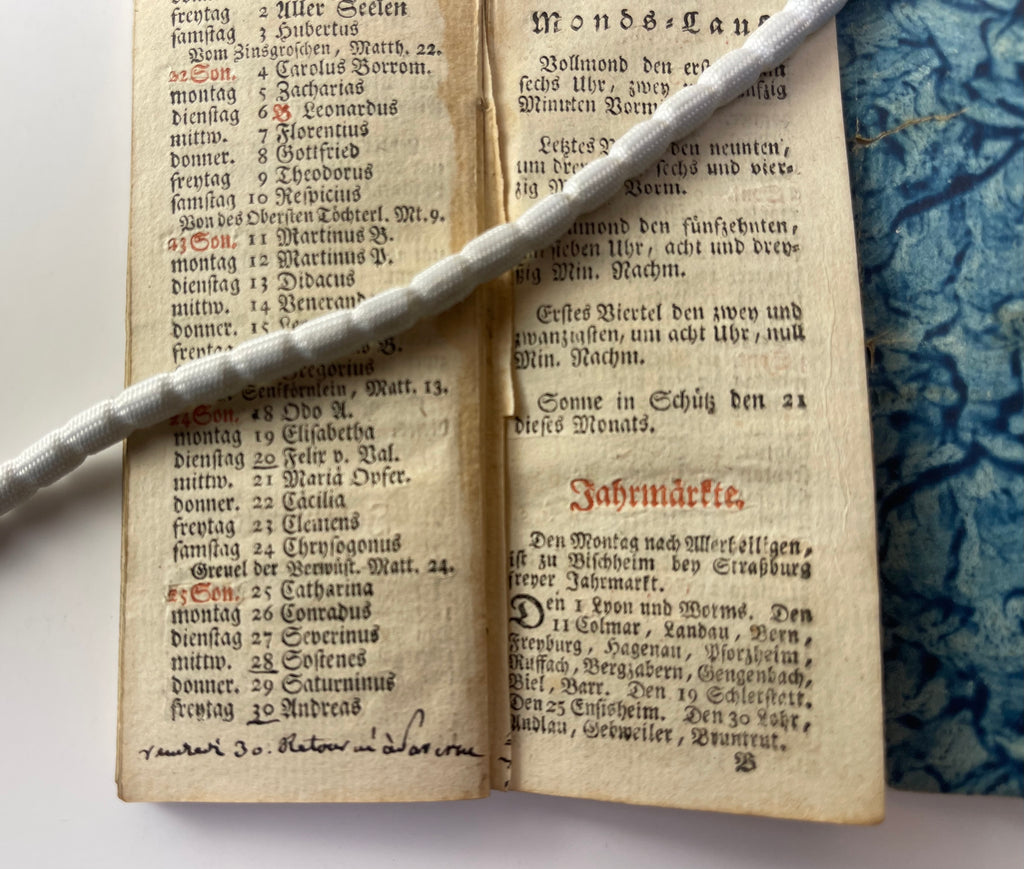 freytag 2 Aller Seelen
samstag 3 Hubertus
Vom Zinsgroschen, Matth. 22.
22 Son. 4 Carolus Borrom.
montag 5 Zacharias
dienstag 6 B Leonardus
mittw. 7 Florentius
donner. 8 Gottfried
freytag 9 Theodorus
samstag 10 Respicius
Von des Obersten Töchterl. Mt. 9.
23 Son. 11 Martinus B.
montag 12 Martinus P.
dienstag 13 Didacus
mittw. 14 Venerand
donner. 15
freytag B.
Gregorius
Senfkörnlein, Matt. 13.
24 Son. 18 Odo A.
montag 19 Elisabetha
dienstag 20 Felix v. Val.
mittw. 21 Mariä Opfer.
donner. 22 Cäcilia
freytag 23 Clemens
samstag 24 Chrysogonus
Greuel der Verwüst. Matt. 24.
25 Son. 25 Catharina
montag 26 Conradus
dienstag 27 Severinus
mittw. 28 Sostenes
donner. 29 Saturninus
freytag 30 Andreas
vendredi 30. Retour à Saverne
Monds-Lauf
Vollmond den
sechs Uhr, zwey
Minuten
Letztes den neunten,
um sechs und vier-
zig Vorm.
den fünfzehnten,
sieben Uhr, acht und drey-
ßig Min. Nachm.
Erstes Viertel den zwey und
zwanzigsten, um acht Uhr, null
Min. Nachm.
Sonne in Schütz den 21
dieses Monats.
Jahrmärkte.
Den Montag nach Allerheiligen,
ist zu Bischheim bey Straßburg
freyer Jahrmarkt.
Den 1 Lyon und Worms. Den
11 Colmar, Landau, Bern,
Freyburg, Hagenau, Pforzheim,
Ruffach, Bergzabern, Gengenbach,
Biel, Barr. Den 19 Schletstatt.
Den 25 Ensisheim. Den 30 Lohr,
Andlau, Gebweiler, Bruntrut.
B